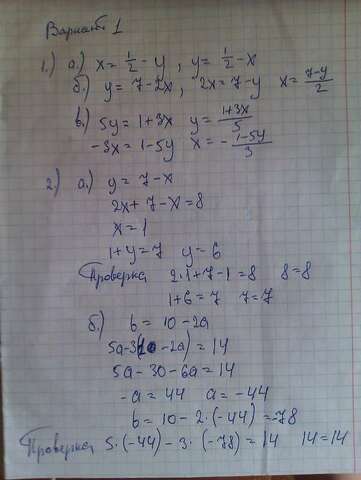 Вариант 1
1.) а.) x = 1/2 - y , y = 1/2 - x
б.) y = 7 - 2x, 2x = 7 - y x = (7-y)/2
в.) 5y = 1 + 3x y = (1+3x)/5
-3x = 1 - 5y x = - (1-5y)/3
2.) а.) y = 7 - x
2x + 7 - x = 8
x = 1
1 + y = 7 y = 6
Проверка 2·1 + 7 - 1 = 8 8 = 8
1 + 6 = 7 7 = 7
б.) b = 10 - 2a
5a - 3(10 - 2a) = 14
5a - 30 - 6a = 14
-a = 44 a = -44
b = 10 - 2·(-44) = -78
Проверка 5·(-44) - 3·(-78) = 14 14 = 14